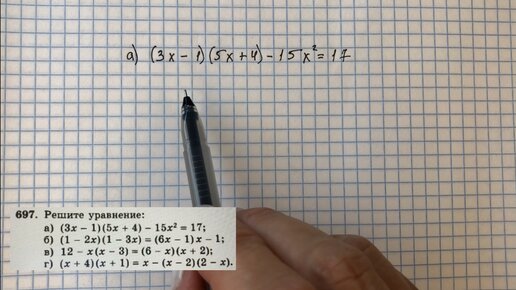 а) (3x − 1)(5x + 4) − 15x² = 17
697. Решите уравнение:
а) (3x − 1)(5x + 4) − 15x² = 17;
б) (1 − 2x)(1 − 3x) = (6x − 1)x − 1;
в) 12 − x(x − 3) = (6 − x)(x + 2);
г) (x + 4)(x + 1) = x − (x − 2)(2 − x).